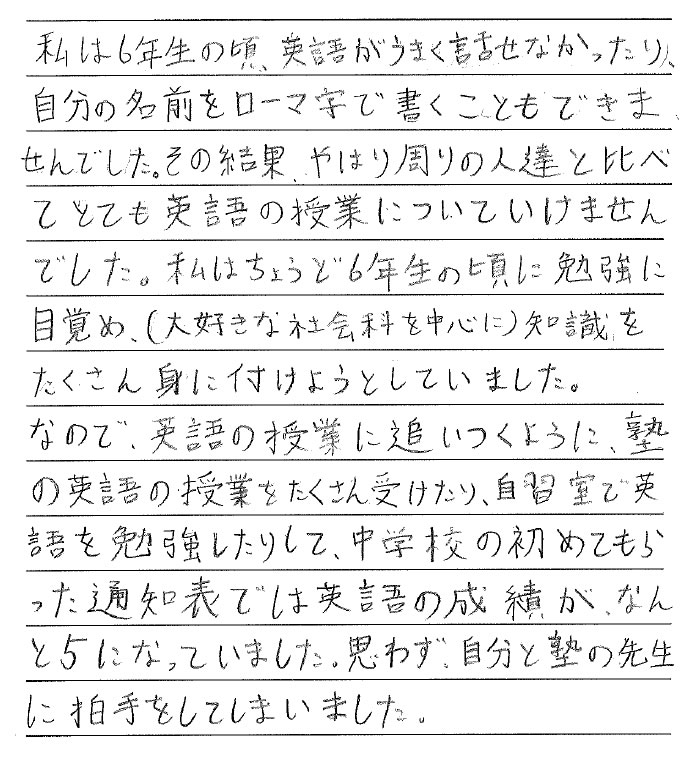 私は6年生の頃、英語がうまく話せなかったり、
自分の名前をローマ字で書くこともできま
せんでした。その結果、やはり周りの人達と比べ
てとても英語の授業についていけません
でした。私はちょうど6年生の頃に勉強に
目覚め、(大好きな社会科を中心に)知識を
たくさん身に付けようとしていました。
なので、英語の授業に追いつくように、塾
の英語の授業をたくさん受けたり、自習室で英
語を勉強したりして、中学校の初めてもら
った通知表では英語の成績が、なん
と5になっていました。思わず、自分と塾の先生
に拍手をしてしまいました。